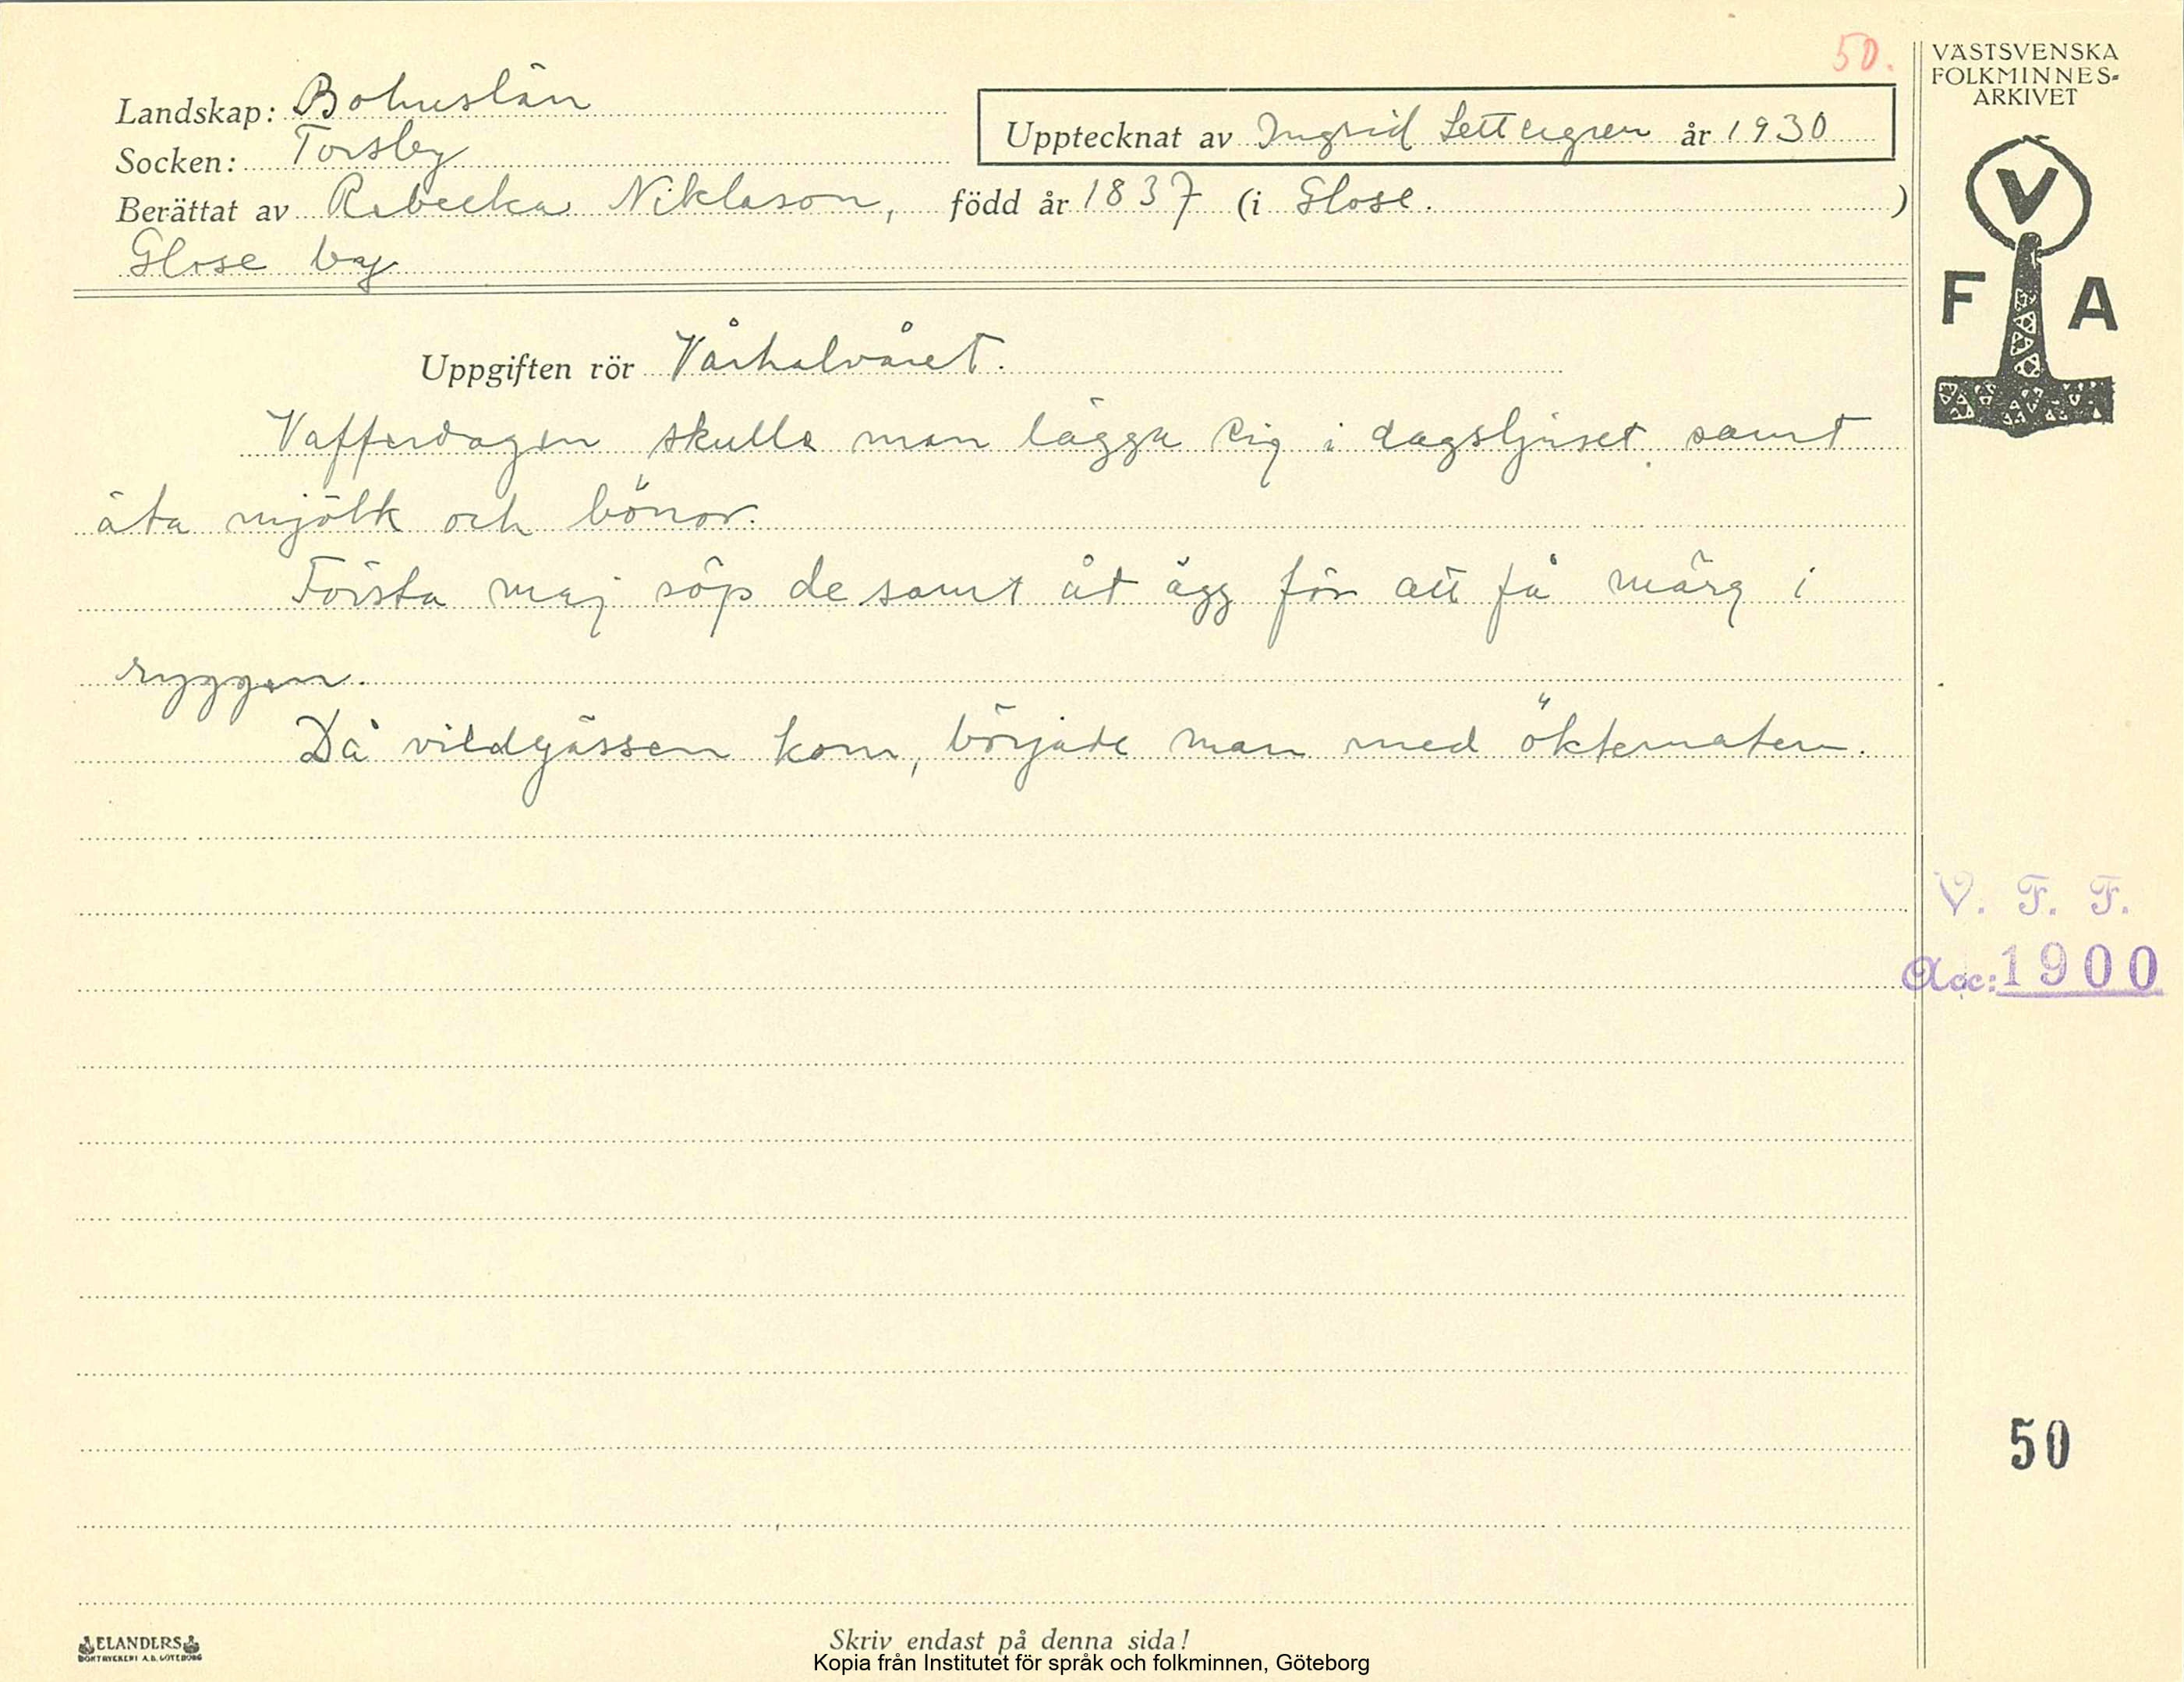 50.
VÄSTSVENSKA
FOLKMINNES-
ARKIVET
Landskap: Bohuslän
Upptecknat av Ingrid Settergren år 1930
Socken: Torsby
Berättat av Rebecka Niklason, född år 1837 (i Glose. )
Glose by
V
F A
Uppgiften rör Vårhalvåret.
Vafferdagen skulle man lägga sig i dagsljuset samt
äta mjölk och bönor.
Första maj söp de samt åt ägg för att få märg i
ryggen.
Då vildgässen kom, började man med öktematen.
V. F. F.
Acc: 1900
50
ELANDERS
BOKTRYCKERI A.B. GÖTEBORG
Skriv endast på denna sida!
Kopia från Institutet för språk och folkminnen, Göteborg